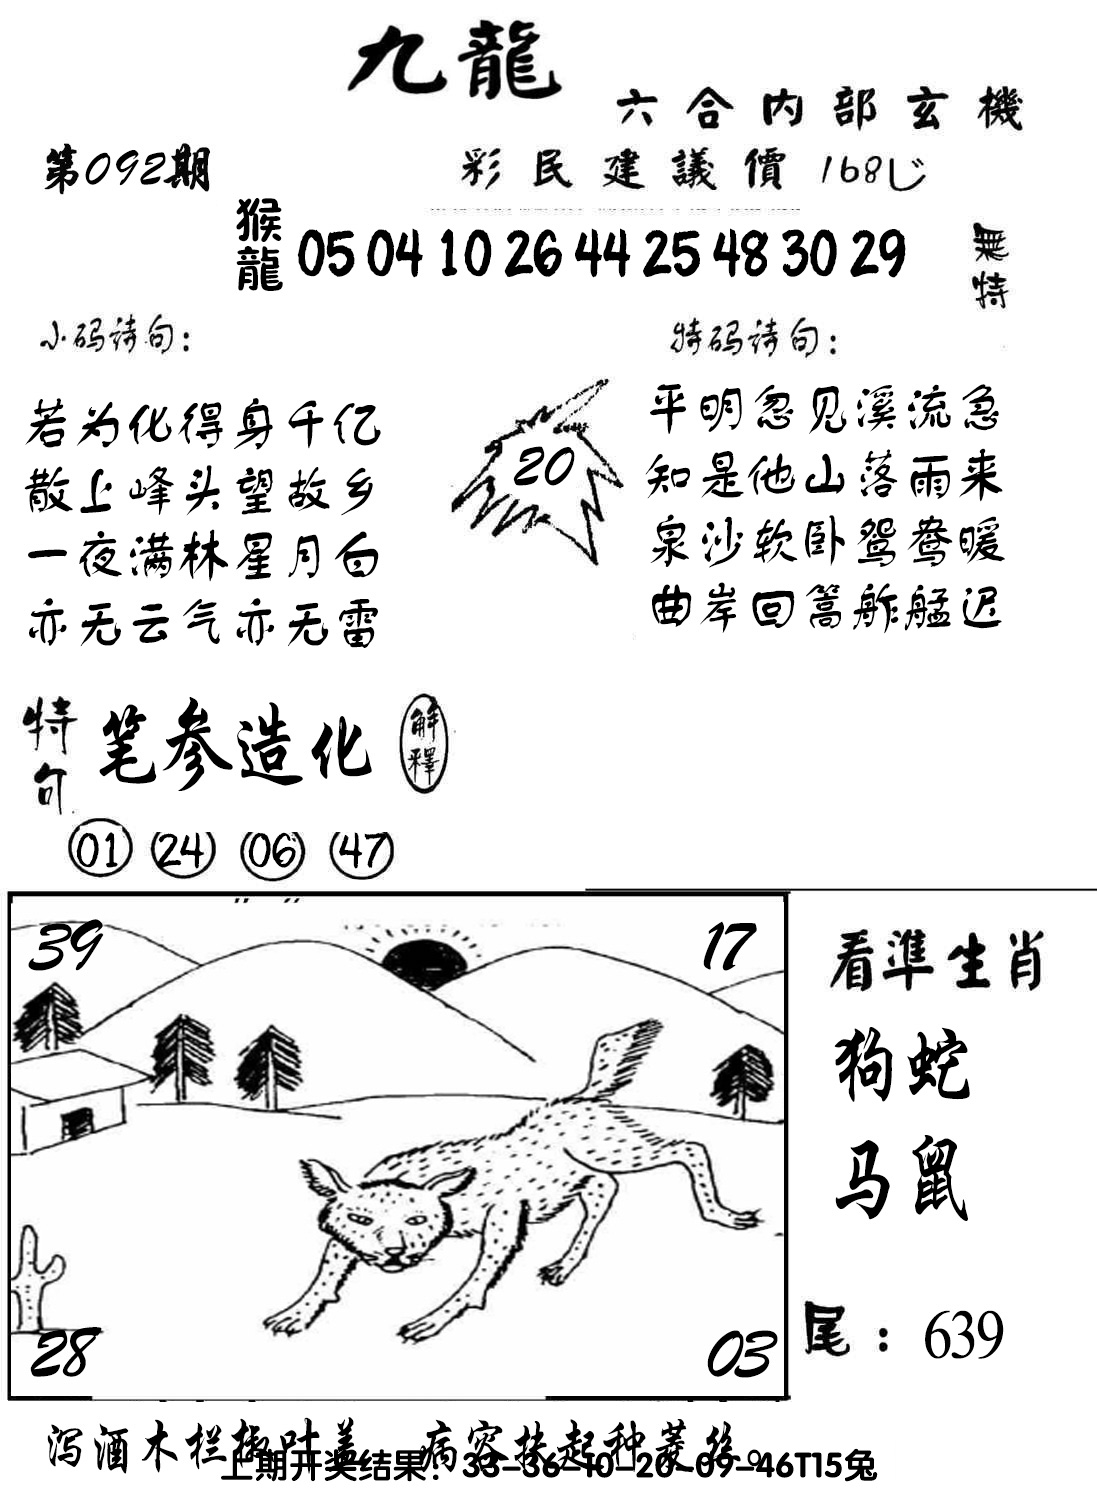 九龍
六合内部玄機
第092期
彩民建議價168じ
猴龍
05 04 10 26 44 25 48 30 29
無特
小码诗句：
特码诗句：
若为化得身千亿
散上峰头望故乡
一夜满林星月白
亦无云气亦无雷
20
平明忽见溪流急
知是他山落雨来
泉沙软卧鸳鸯暖
曲岸回篙舴艋迟
特句
笔参造化
解釋
01 24 06 47
39
17
28
03
看準生肖
狗蛇
马鼠
尾：639
泻酒木栏椒叶盖 病容扶起种菱丝。
上期开奖结果：33-36-10-20-09-46T15兔